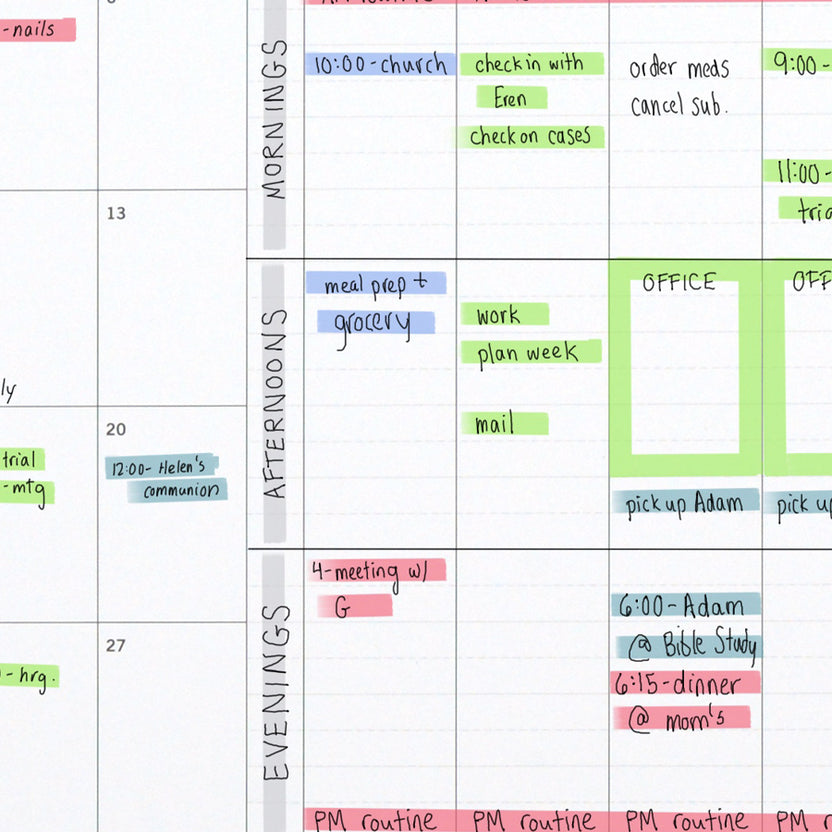 -nails
13
ly
20
trial
-mtg
12:00- Helen's
communion
27
- hrg.
MORNINGS
10:00-church
check in with
Eren
check on cases
order meds
cancel sub.
9:00-
11:00-
AFTERNOONS
meal prep +
grocery
work
plan week
mail
OFFICE
OFF
pick up Adam
pick up
EVENINGS
4-meeting w/
G
6:00-Adam
@ Bible Study
6:15-dinner
@ mom's
PM routine
PM routine
PM routine
PM